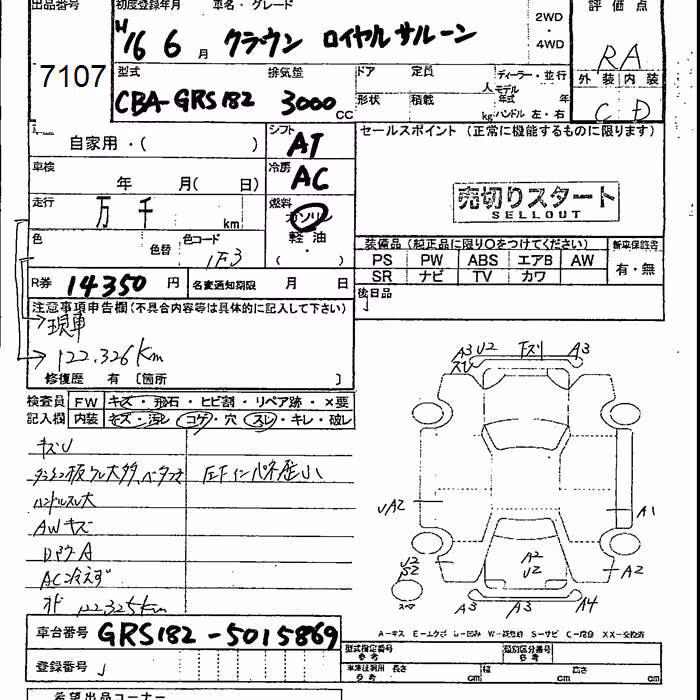 出品番号 初度登録年月 車名・グレード 2WD・4WD 評価点
7107 H16 6月 クラウン ロイヤルサルーン RA
型式 排気量 ドア 定員 人 ディーラー・並行
モデル年式 年
外装 内装
CBA-GRS182 3000cc 形状 積載 kg ハンドル 左・右 C D
自家用・( ) シフト AT セールスポイント(正常に機能するものに限ります)
車検 年 月( 日) 冷房 AC
売切りスタート
SELLOUT
走行 万 千 km 燃料 ガソリン
軽油
( ・ )
色 色替 色コード 1F3
装備品(純正品に限り○をつけてください) 新車保証書
PS PW ABS エアB AW 有・無
SR ナビ TV カワ
R券 14350円 名変通知期限 月 日 後日品
注意事項申告欄(不具合内容等は具体的に記入して下さい)
現車
122.326km
修復歴 有 〔箇所 〕
検査員 FW キズ・飛石・ヒビ割・リペア跡・×要
記入欄 内装 キズ・汚レ・コゲ・穴・スレ・キレ・破レ
キズU
ハンドルスレ大
AWキズ
AC冷えず
122.325km
A3 U2 A3
スレ
UA2 A1
A2
U2
A2
A3 A3 A4
A-キズ E-エクボ U-凹み W-波 S-サビ C-腐食 XX-交換済
車台番号 GRS182-5015869
登録番号
型式指定番号 参考 類別区分番号 参考
長さ cm 幅 cm 高さ cm
希望出品コーナー